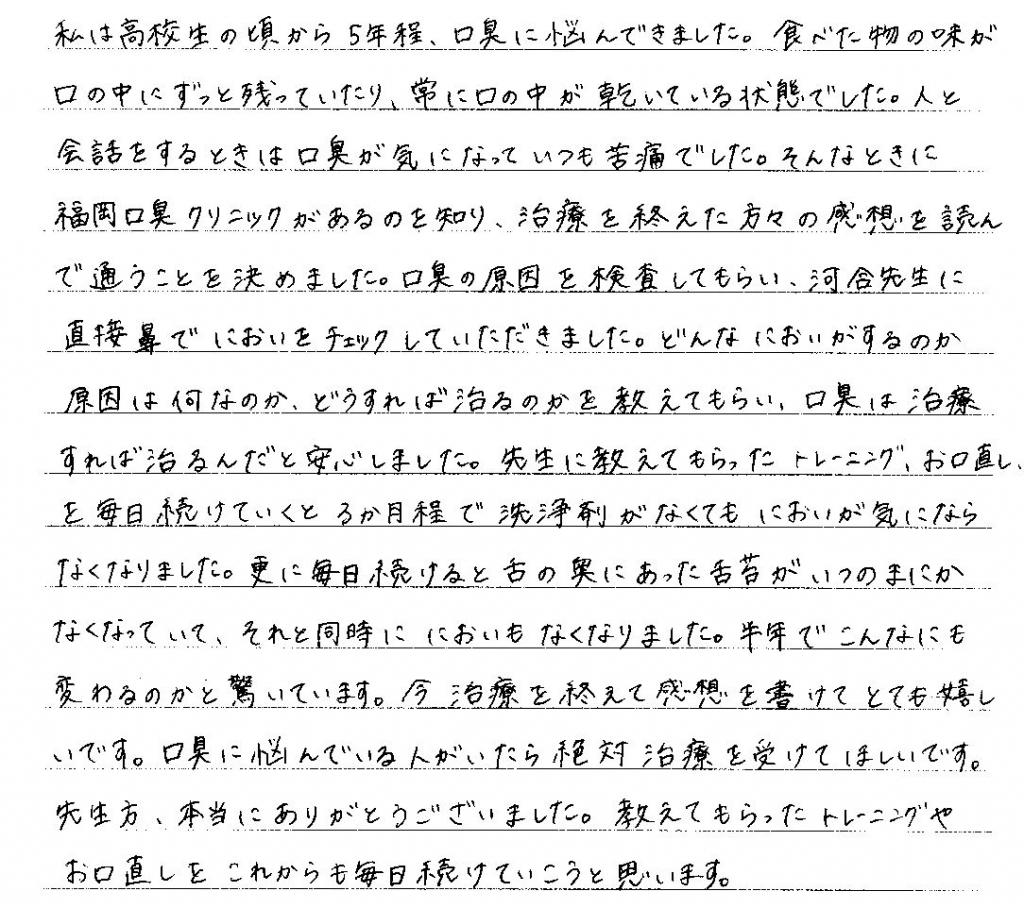 私は高校生の頃から5年程、口臭に悩んできました。食べた物の味が
口の中にずっと残っていたり、常に口の中が乾いている状態でした。人と
会話をするときは口臭が気になっていつも苦痛でした。そんなときに
福岡口臭クリニックがあるのを知り、治療を終えた方々の感想を読ん
で通うことを決めました。口臭の原因を検査してもらい、河合先生に
直接鼻でにおいをチェックしていただきました。どんなにおいがするのか
原因は何なのか、どうすれば治るのかを教えてもらい、口臭は治療
すれば治るんだと安心しました。先生に教えてもらったトレーニング、お口直し、
を毎日続けていくと3か月程で洗浄剤がなくてもにおいが気になら
なくなりました。更に毎日続けると舌の奥にあった舌苔がいつのまにか
なくなっていて、それと同時ににおいもなくなりました。半年でこんなにも
変わるのかと驚いています。今治療を終えて感想を書けてとても嬉し
いです。口臭に悩んでいる人がいたら絶対治療を受けてほしいです。
先生方、本当にありがとうございました。教えてもらったトレーニングや
お口直しをこれからも毎日続けていこうと思います。